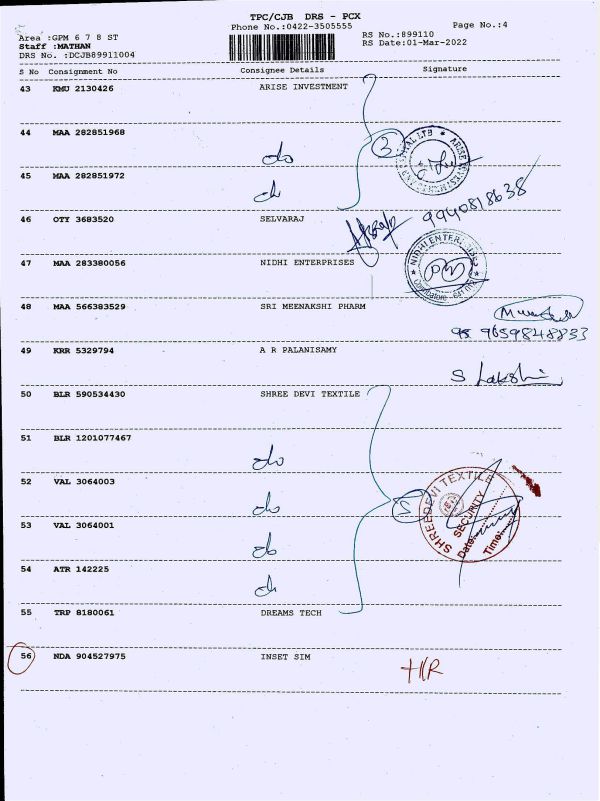 TPC/CJB DRS - PCX
Phone No.:0422-3505555
Page No.:4
Area :GPM 6 7 8 ST
RS No.:899110
Staff :MATHAN
RS Date:01-Mar-2022
DRS No. :DCJB89911004
S No Consignment No Consignee Details Signature
43 KMU 2130426 ARISE INVESTMENT
44 MAA 282851968
do
3
ARISE INVESTMENT
45 MAA 282851972
do
9940818638
46 OTY 3683520 SELVARAJ
47 MAA 283380056 NIDHI ENTERPRISES
NIDHI ENTERPRISES
Coimbatore
48 MAA 566383529 SRI MEENAKSHI PHARM
98 9659848833
49 KRR 5329794 A R PALANISAMY
S Lakshmi
50 BLR 590534430 SHREE DEVI TEXTILE
51 BLR 1201077467
do
52 VAL 3064003
do
5
SHREEDEVI TEXTILE
SECURITY
Date:
Time:
53 VAL 3064001
do
54 ATR 142225
do
55 TRP 8180061 DREAMS TECH
56 NDA 904527975 INSET SIM
HR